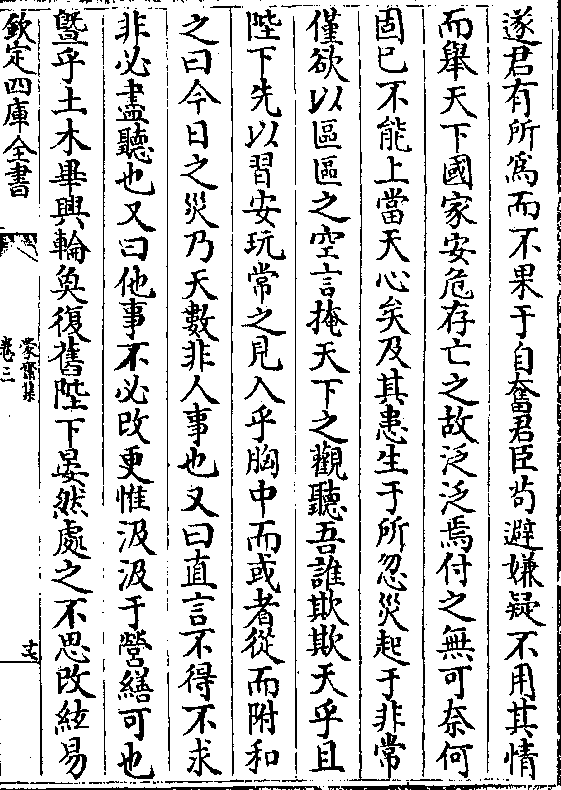 遂君有所為而不果于自奮君臣苟避嫌疑不用其情
而舉天下國家安危存亡之故泛泛焉付之無可奈何
固已不能上當天心矣及其患生于所忽災起于非常
僅欲以區區之空言掩天下之觀聽吾誰欺欺天乎且
陛下先以習安玩常之見入乎胸中而或者從而附和
之曰今日之災乃天數非人事也又曰直言不得不求
非必盡聽也又曰他事不必改更惟汲汲于營繕可也
暨乎土木畢興輪奐復舊陛下晏然處之不思改絃易
欽定四庫全書
蒙齋集
卷三